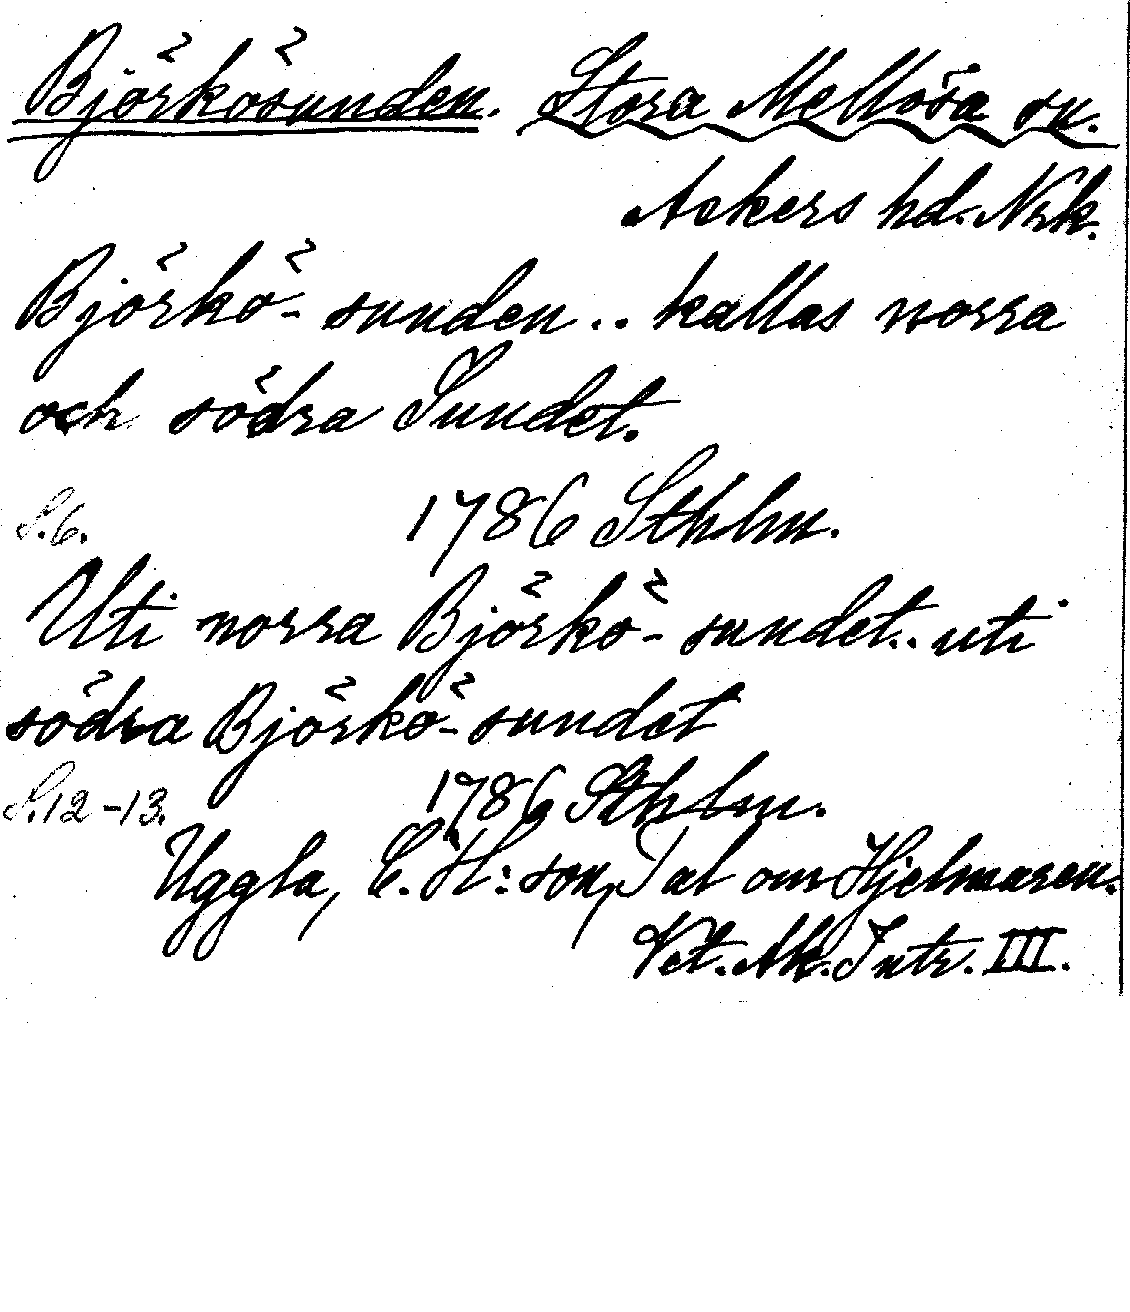 Björkösunden. Stora Mellösa sn.
Askers hd. Nrk.
Björkö- sunden .. kallas norra
och södra Sundet.
S.6. 1786 Sthlm.
Uti norra Björkö- sundet .. uti
södra Björkö-sundet
S.12-13. 1786 Sthlm.
Uggla, C. H:son, Tal om Hjelmaren.
Vet. Ak. Intr. III.